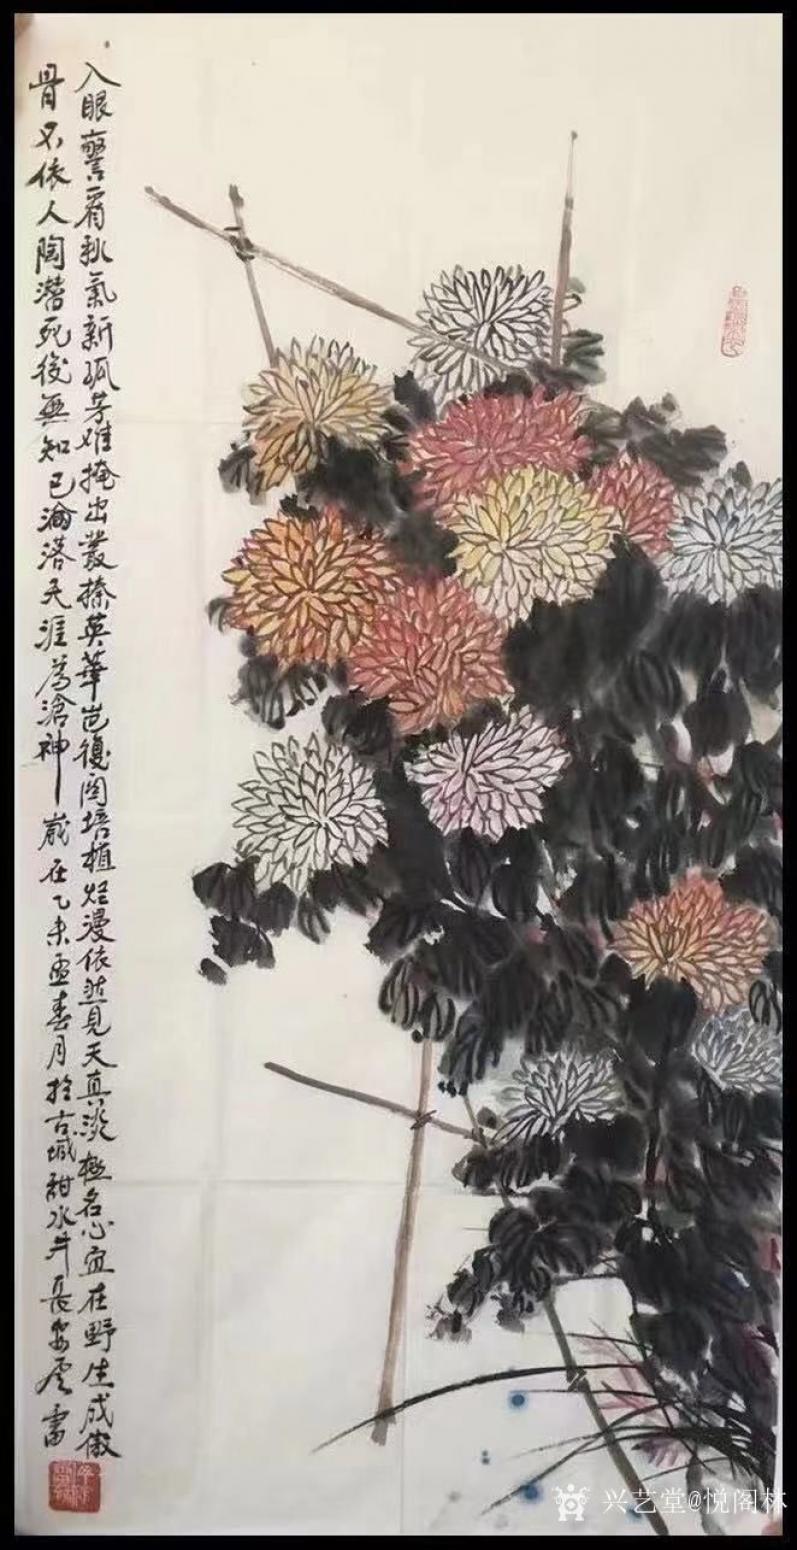 入眼驚看秋氣新孤芳难掩出叢榛英華岂復関培植烂漫依然見天真淡極名心宜在野生成傲
骨不依人陶潜死後無知己淪落天涯為滄神歲在乙未孟春月於古城甜水井長安雲雷
兴艺堂@悦阁林